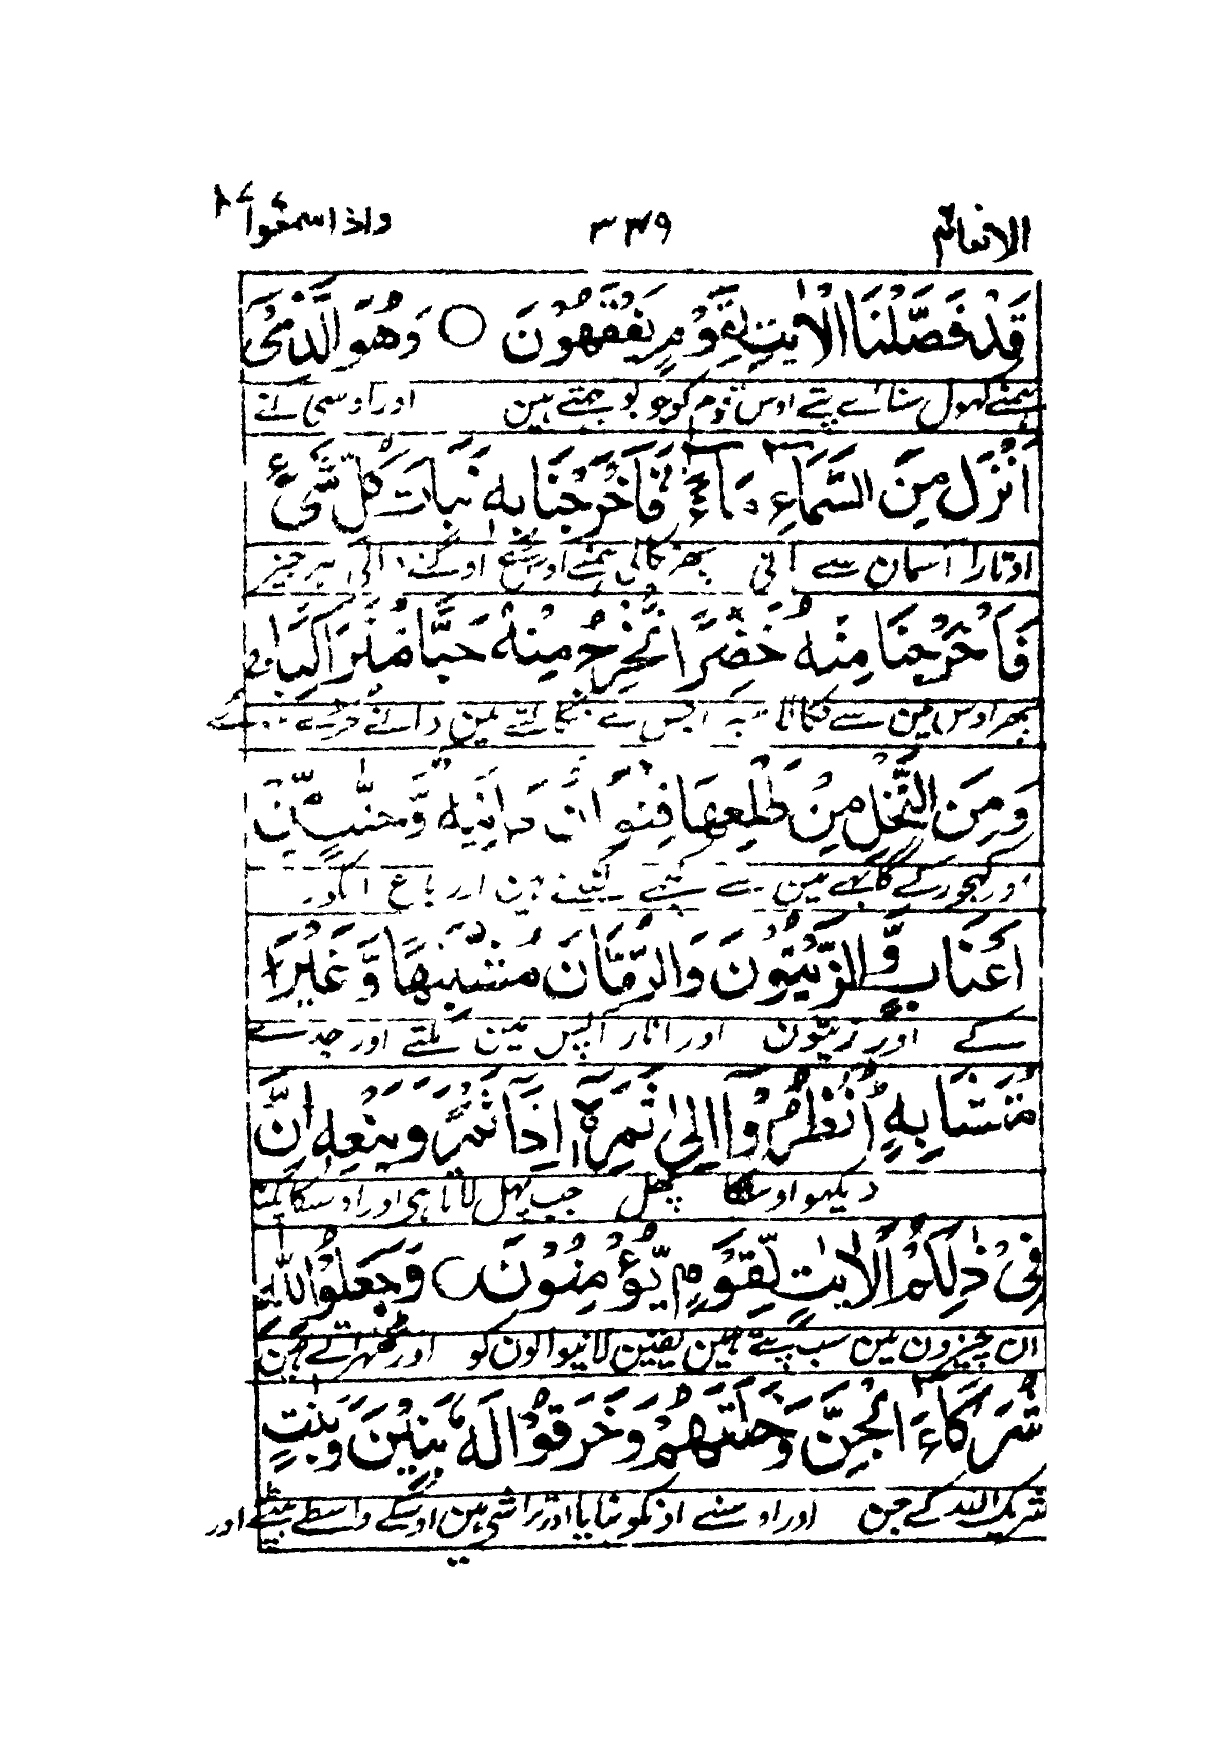 الانعام ٣٣٩ واذا سمعوا ٧
قَدْ فَصَّلْنَا الْاٰيٰتِ لِقَوْمٍ يَّفْقَهُوْنَ ○ وَهُوَ الَّذِيْٓ
ہمنے کہول سنائے پتے اوس قوم کو جو بوجہتے ہین اور اوسی نے
اَنْزَلَ مِنَ السَّمَآءِ مَآءً ۚ فَاَخْرَجْنَا بِهٖ نَبَاتَ كُلِّ شَيْءٍ
اوتارا آسمان سے پانی پھر نکالی ہمنے اوس سے اوگنے والی ہر چیز
فَاَخْرَجْنَا مِنْهُ خَضِرًا نُّخْرِجُ مِنْهُ حَبًّا مُّتَرَاكِبًا ۚ
پھر اوس مین سے نکالا سبزہ جس سے نکالتے ہین دانے
وَمِنَ النَّخْلِ مِنْ طَلْعِهَا قِنْوَانٌ دَانِيَةٌ وَّجَنّٰتٍ مِّنْ
اور کہجور کے گابہے مین سے گچہے لٹکتے ہین اور باغ انگور
اَعْنَابٍ وَّالزَّيْتُوْنَ وَالرُّمَّانَ مُشْتَبِهًا وَّغَيْرَ
کے اور زیتون اور انار آپس مین ملتے اور جدے
مُتَشَابِهٍ ۗ اُنْظُرُوْٓا اِلٰى ثَمَرِهٖٓ اِذَآ اَثْمَرَ وَيَنْعِهٖ ۗ اِنَّ
دیکہو اوسکا پھل جب پہل لاتا ہی اور اوسکا پکنا
فِيْ ذٰلِكُمْ لَاٰيٰتٍ لِّقَوْمٍ يُّؤْمِنُوْنَ ○ وَجَعَلُوْا لِلّٰهِ
ان چیزون مین سب پتے ہین یقین لانیوالون کو اور ٹھہراتے ہین
شُرَكَآءَ الْجِنَّ وَخَلَقَهُمْ وَخَرَقُوْا لَهٗ بَنِيْنَ وَبَنٰتٍۭ
شریک اللہ کے جن اور اوسنے انکو بنایا اور تراشتے ہین اوسکے واسطے بیٹے اور